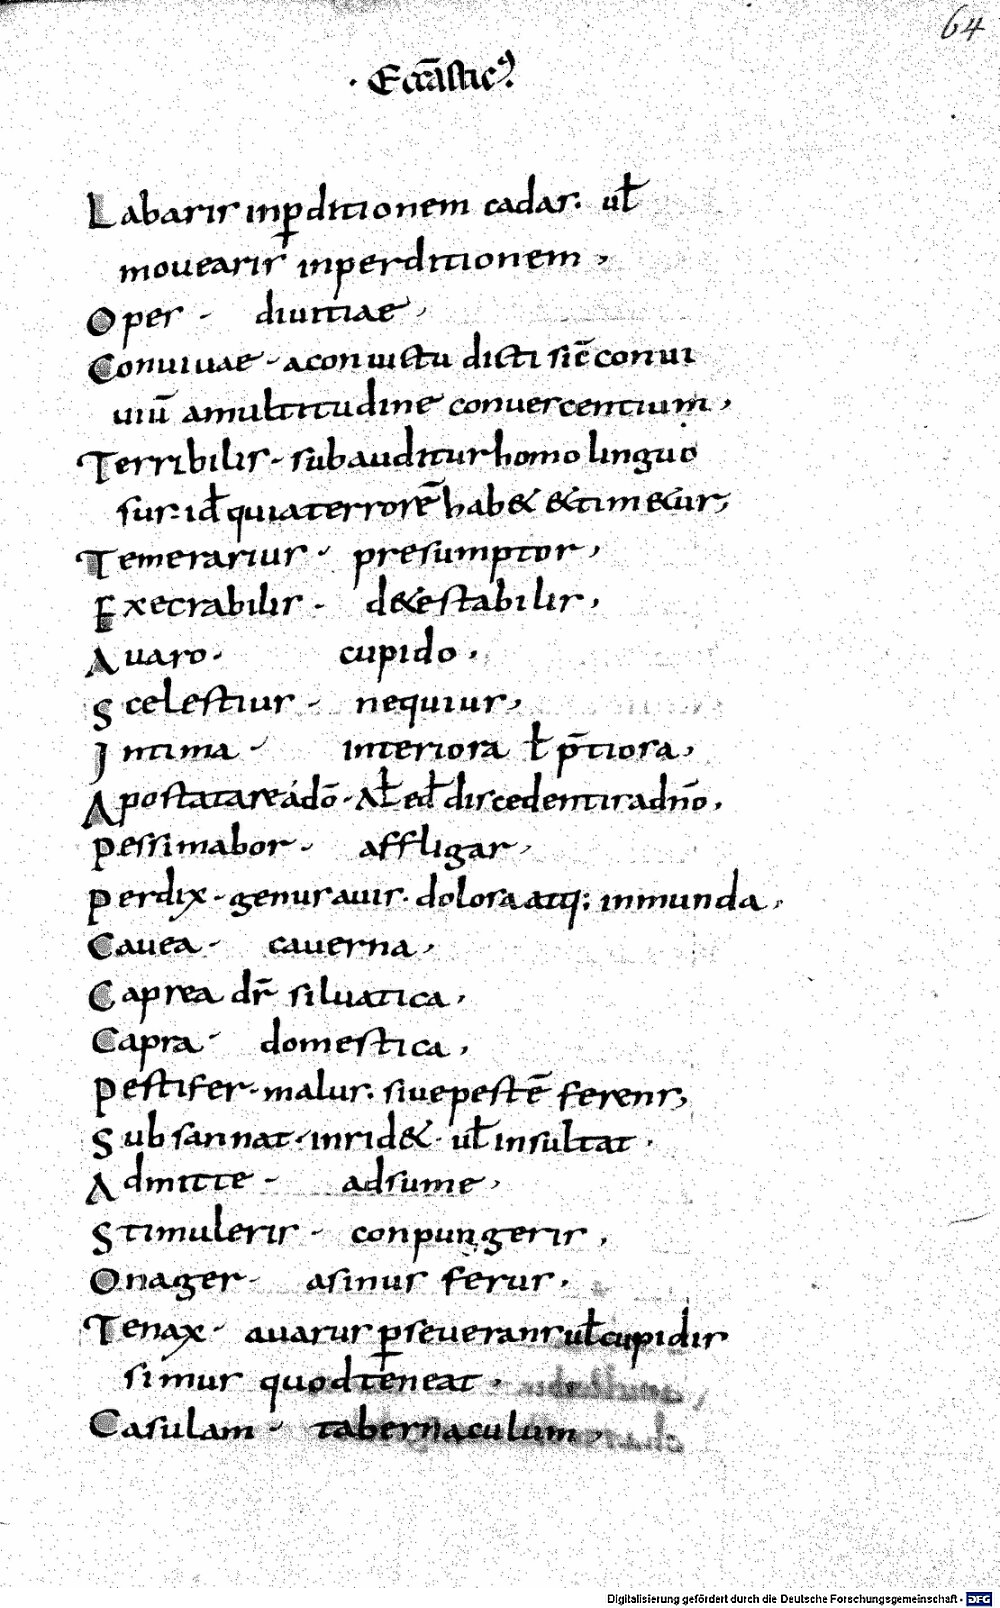 64
· Eccl̄astic⁹
Labaris inꝑditionem cadas. ul̵
mouearis inperditionem,
Opes - diuitiae,
Conuiuae - aconuictu dicti siē conui
uiū amultitudine conuescentium,
Terribilis - subauditur homo linguo
sus: id̵ quia terrorē hab& &tim&ur;
Temerarius - presumptor,
Execrabilis - d&estabilis,
Auaro - cupido,
Scelestius - nequius,
Intima - interiora l̵ p̄tiora,
Apostatare ádō - Al̵ ed̵ discedentis adn̄o,
Pessimabor - affligar,
Perdix - genus auis. dolosa atq; inmunda,
Cauea - cauerna,
Caprea dr̄ siluatica,
Capra - domestica,
Pestifer - malus. siue pestē ferens;
Subsannat - inrid& ul̵ insultat.
Admitte - adsume,
Stimuleris - conpungeris,
Onager - asinus ferus.
Tenax - auarus ꝑseuerans ul̵ cupidis
simus quod teneat,
Casulam - tabernaculum,
Digitalisierung gefördert durch die Deutsche Forschungsgemeinschaft - DFG